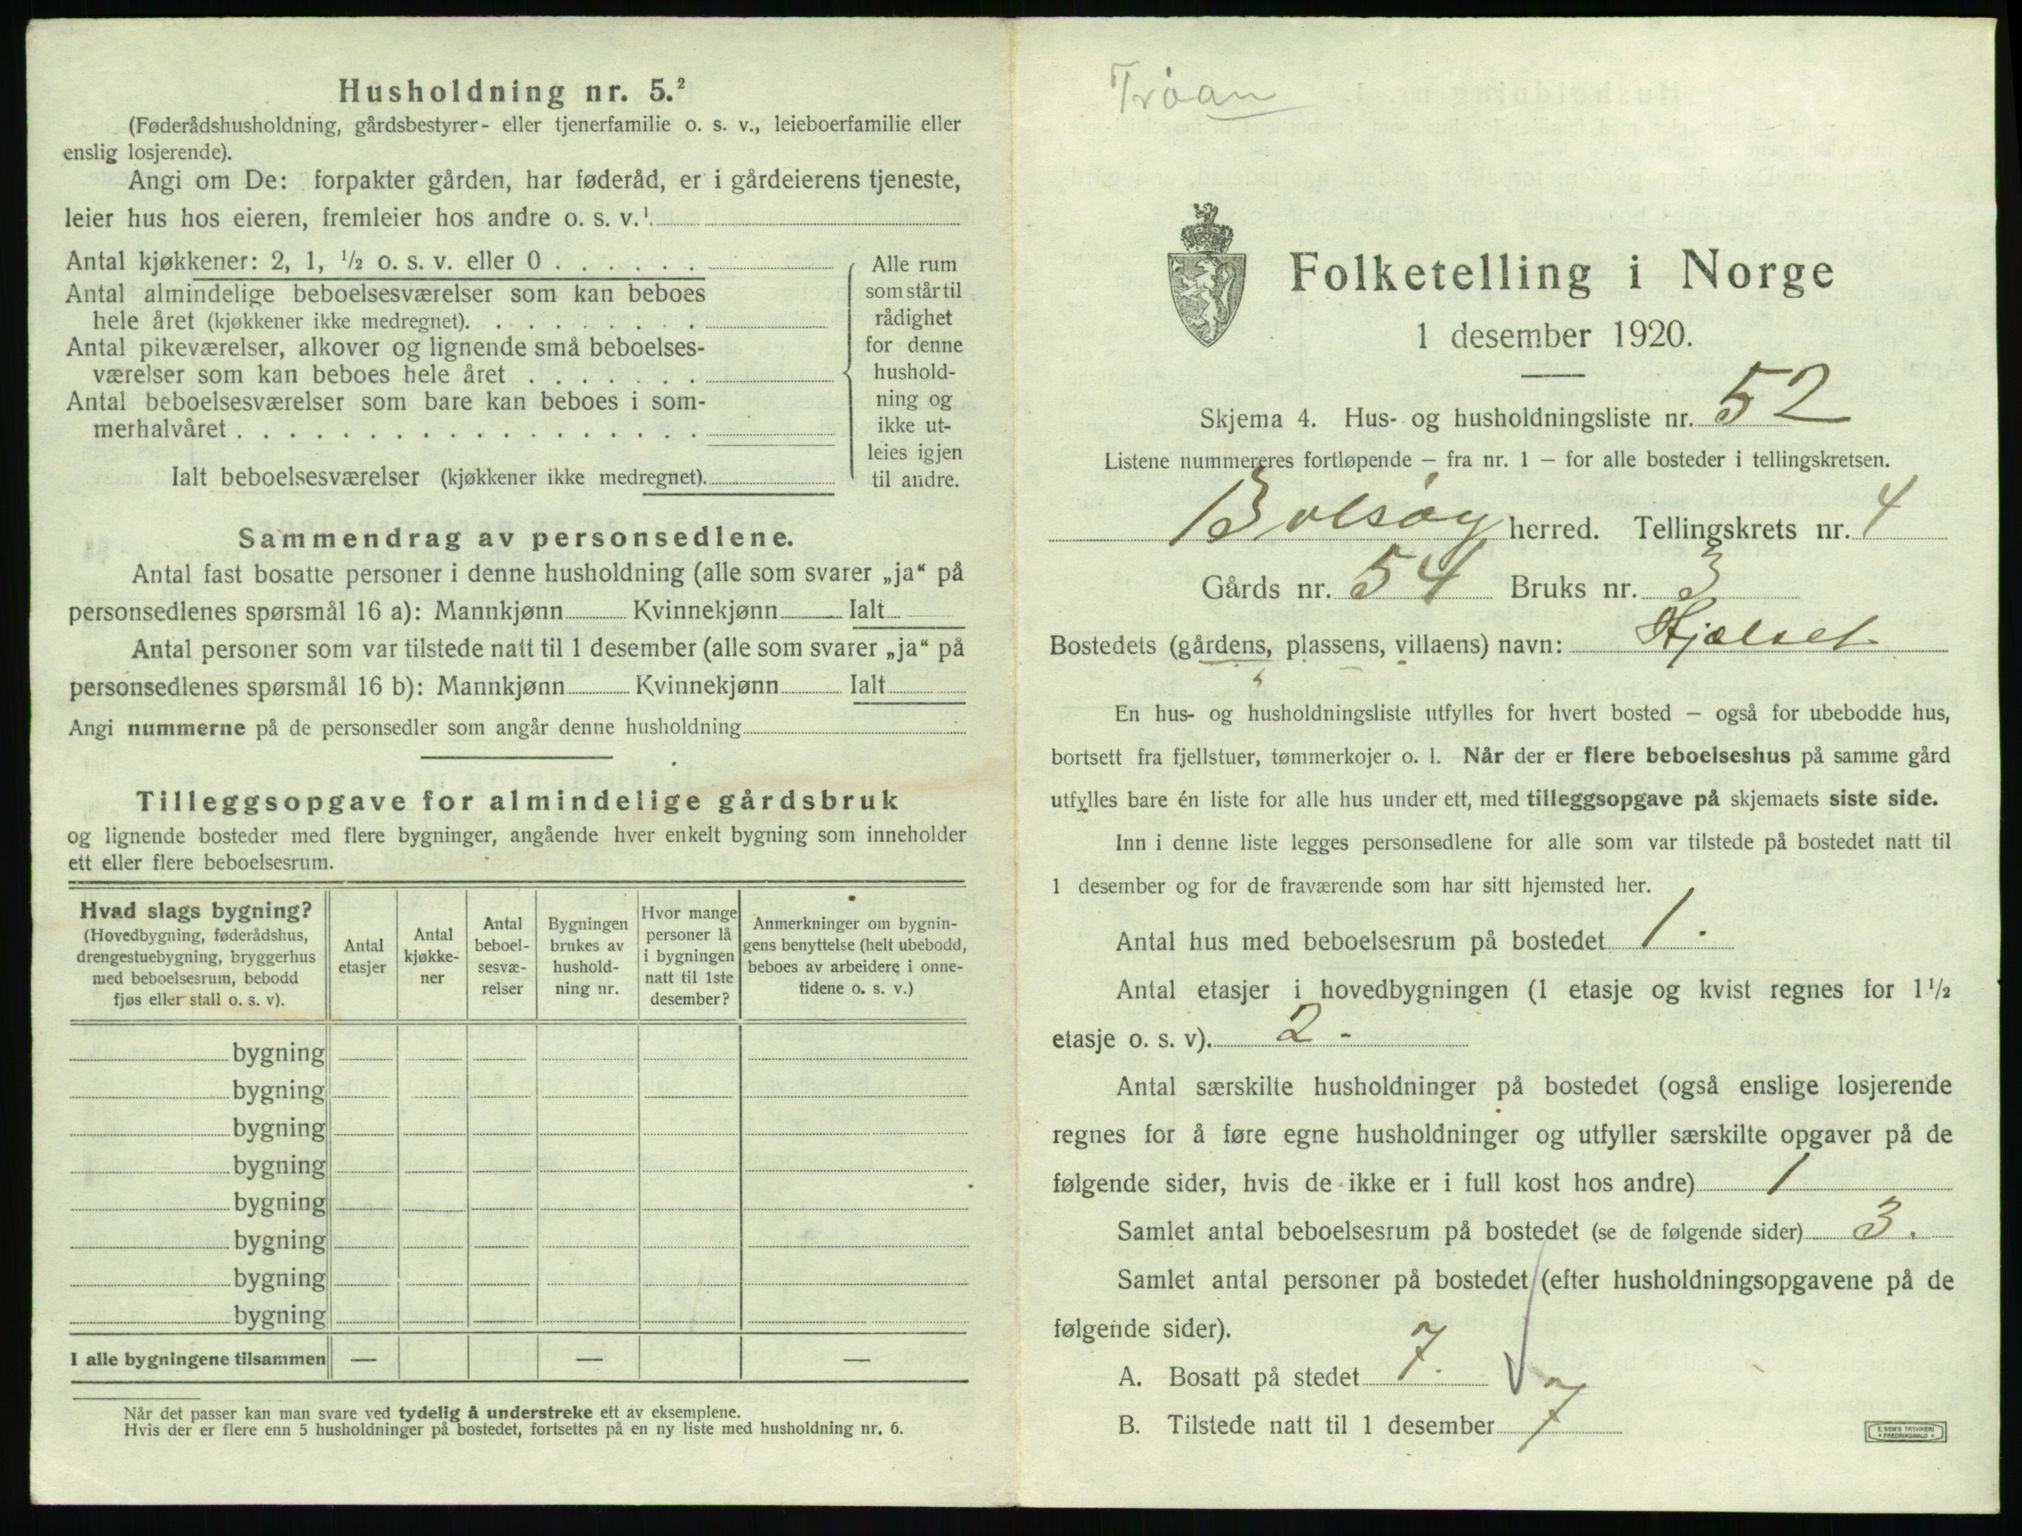 Husholdning nr. 5.²
(Føderådshusholdning, gårdsbestyrer- eller tjenerfamilie o. s. v., leieboerfamilie eller
enslig losjerende).
Angi om De: forpakter gården, har føderåd, er i gårdeierens tjeneste,
leier hus hos eieren, fremleier hos andre o. s. v.¹
Antal kjøkkener: 2, 1, ½ o. s. v. eller 0 . . . . . .
Antal almindelige beboelsesværelser som kan beboes
hele året (kjøkkener ikke medregnet). . . . . . . . .
Antal pikeværelser, alkover og lignende små beboelses-
værelser som kan beboes hele året . . . . . . .
Antal beboelsesværelser som bare kan beboes i som-
merhalvåret . . . . . . . . . . . . . . . . . .
Ialt beboelsesværelser (kjøkkener ikke medregnet).
Alle rum
som står til
rådighet
for denne
hushold-
ning og
ikke ut-
leies igjen
til andre.
Sammendrag av personsedlene.
Antal fast bosatte personer i denne husholdning (alle som svarer „ja“ på
personsedlenes spørsmål 16 a): Mannkjønn Kvinnekjønn Ialt
Antal personer som var tilstede natt til 1 desember (alle som svarer „ja“ på
personsedlenes spørsmål 16 b): Mannkjønn Kvinnekjønn Ialt
Angi nummerne på de personsedler som angår denne husholdning
Tilleggsopgave for almindelige gårdsbruk
og lignende bosteder med flere bygninger, angående hver enkelt bygning som inneholder
ett eller flere beboelsesrum.
Hvad slags bygning?
(Hovedbygning, føderådshus,
drengestuebygning, bryggerhus
med beboelsesrum, bebodd
fjøs eller stall o. s. v).
Antal
etasjer
Antal
kjøkke-
ner
Antal
beboel-
sesvæ-
relser
Bygningen
brukes av
hushold-
ning nr.
Hvor mange
personer lå
i bygningen
natt til 1ste
desember?
Anmerkninger om bygnin-
gens benyttelse (helt ubebodd,
beboes av arbeidere i onne-
tidene o. s. v.)
bygning
bygning
bygning
bygning
bygning
bygning
bygning
bygning
I alle bygningene tilsammen — — —
Når det passer kan man svare ved tydelig å understreke ett av eksemplene.
Hvis der er flere enn 5 husholdninger på bostedet, fortsettes på en ny liste med husholdning nr. 6.
Trøan
Folketelling i Norge
1 desember 1920.
Skjema 4. Hus- og husholdningsliste nr. 52
Listene nummereres fortløpende – fra nr. 1 – for alle bosteder i tellingskretsen.
Bolsøy herred. Tellingskrets nr. 4
Gårds nr. 54 Bruks nr. 3
Bostedets (gårdens, plassens, villaens) navn: Hjælset
En hus- og husholdningsliste utfylles for hvert bosted – også for ubebodde hus,
bortsett fra fjellstuer, tømmerkojer o. l. Når der er flere beboelseshus på samme gård
utfylles bare én liste for alle hus under ett, med tilleggsopgave på skjemaets siste side.
Inn i denne liste legges personsedlene for alle som var tilstede på bostedet natt til
1 desember og for de fraværende som har sitt hjemsted her.
Antal hus med beboelsesrum på bostedet 1.
Antal etasjer i hovedbygningen (1 etasje og kvist regnes for 1½
etasje o. s. v). 2 -
Antal særskilte husholdninger på bostedet (også enslige losjerende
regnes for å føre egne husholdninger og utfyller særskilte opgaver på de
følgende sider, hvis de ikke er i full kost hos andre) 1
Samlet antal beboelsesrum på bostedet (se de følgende sider) 3.
Samlet antal personer på bostedet (efter husholdningsopgavene på de
følgende sider).
A. Bosatt på stedet 7.
B. Tilstede natt til 1 desember 7
E. SEM'S TRYKKERI
• FREDRIKSHALD •